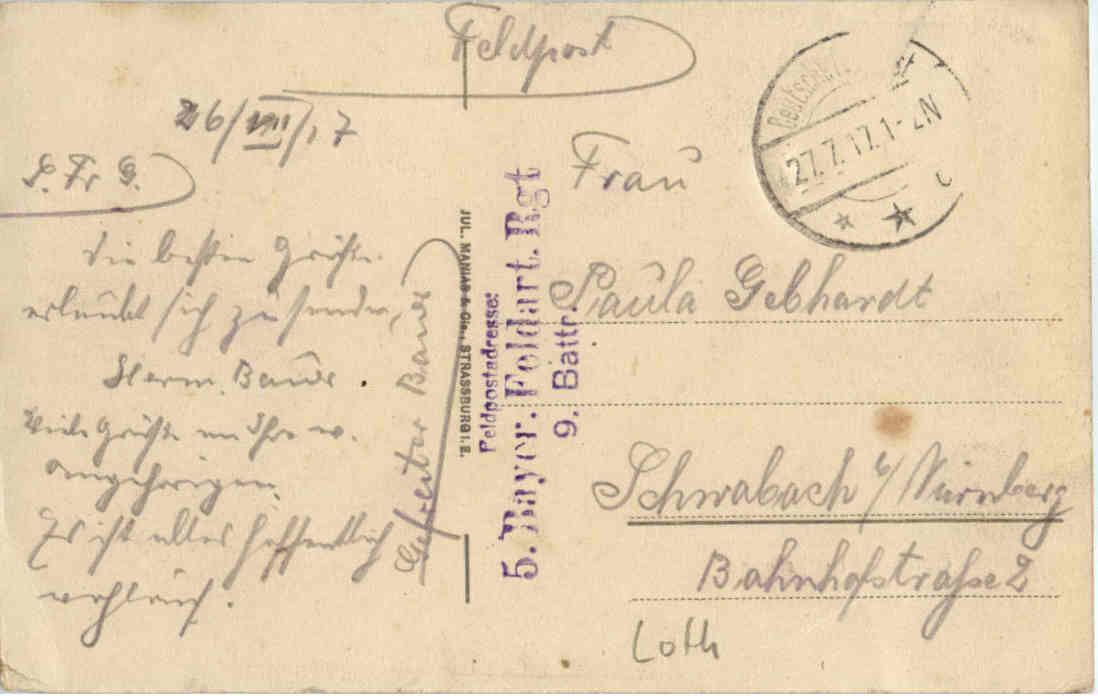 Feldpost
26/VII/17
L. Fr. G.
Die besten Grüße
erlaubt sich zu senden,
Herm. Bauer.
Viele Grüße an Ihre w.
Angehörigen.
Es ist alles hoffentlich
wohlauf.
Gefreiter Bauer
JUL. MANIAS & Cie., STRASSBURG i. E.
Feldpostadresse:
5. Bayer. Feldart. Rgt
9. Battr.
27.7.17.1-2N
Frau
Paula Gebhardt
Schwabach b/Nürnberg
Bahnhofstraße 2
Loth